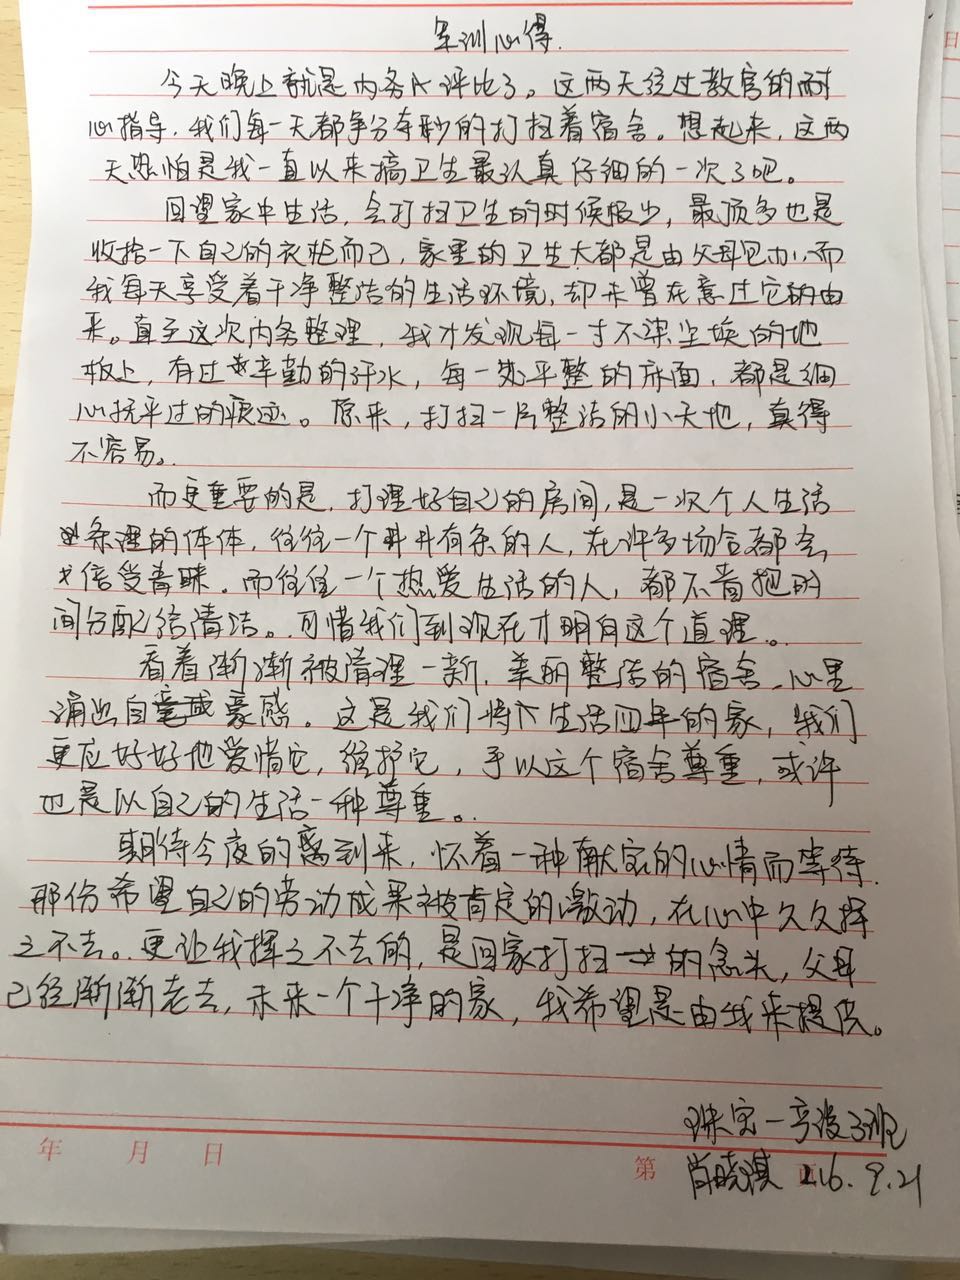 军训心得.
今天晚上就是内务大评比了。这两天经过教官的耐
心指导，我们每一天都争分夺秒的打扫着宿舍。想起来，这两
天恐怕是我一直以来搞卫生最认真仔细的一次了吧。
回望家中生活，会打扫卫生的时候极少，最顶多也是
收拾一下自己的衣柜而已，家里的卫生大都是由父母包办，而
我每天享受着干净整洁的生活环境，却未曾在意过它的由
来。直至这次内务整理，我才发现每一寸不染尘埃的地
板上，有过辛勤的汗水，每一处平整的床面，都是细
心抚平过的痕迹。原来，打扫一片整洁的小天地，真得
不容易。
而更重要的是，打理好自己的房间，是一次个人生活
条理的体体，往往一个井井有条的人，在许多场合都会
倍受青睐。而往往一个热爱生活的人，都不吝把时
间分配给清洁。可惜我们到现在才明白这个道理。
看着渐渐被清理一新，美丽整洁的宿舍，心里
涌出自豪感。这是我们将生活四年的家，我们
更应好好地爱惜它，维护它，予以这个宿舍尊重，或许
也是以自己的生活一种尊重。
期待今夜的到来，怀着一种献宝的心情而等待.
那份希望自己的劳动成果被肯定的激动，在心中久久挥
之不去。更让我挥之不去的，是回家打扫的念头，父母
已经渐渐老去，未来一个干净的家，我希望是由我来提供。
珠宝一学设3班
年 月 日 第
肖晓淇 216.9.21